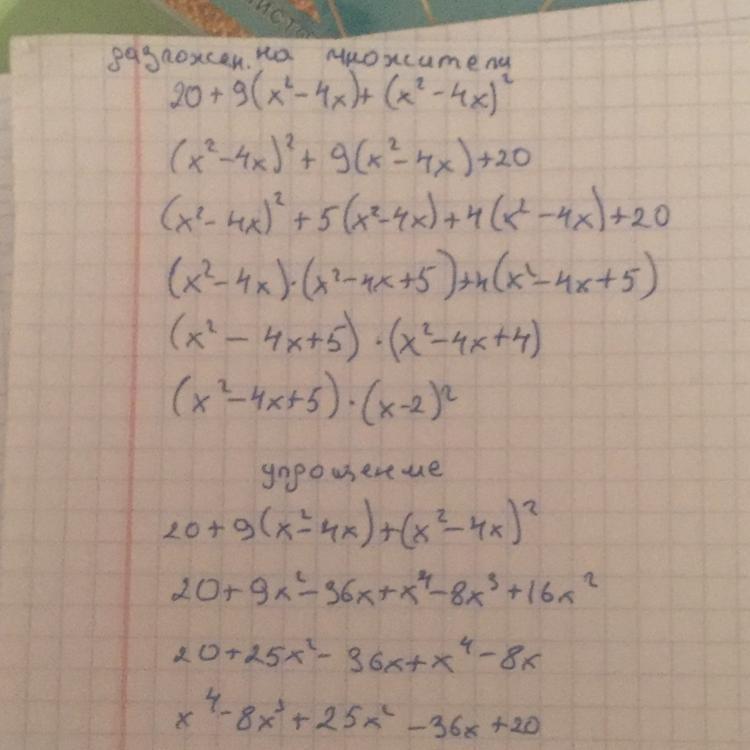 разложен. на множители
20 + 9(x² - 4x) + (x² - 4x)²
(x² - 4x)² + 9(x² - 4x) + 20
(x² - 4x)² + 5(x² - 4x) + 4(x² - 4x) + 20
(x² - 4x) · (x² - 4x + 5) + 4(x² - 4x + 5)
(x² - 4x + 5) · (x² - 4x + 4)
(x² - 4x + 5) · (x - 2)²
упрощение
20 + 9(x² - 4x) + (x² - 4x)²
20 + 9x² - 36x + x⁴ - 8x³ + 16x²
20 + 25x² - 36x + x⁴ - 8x
x⁴ - 8x³ + 25x² - 36x + 20